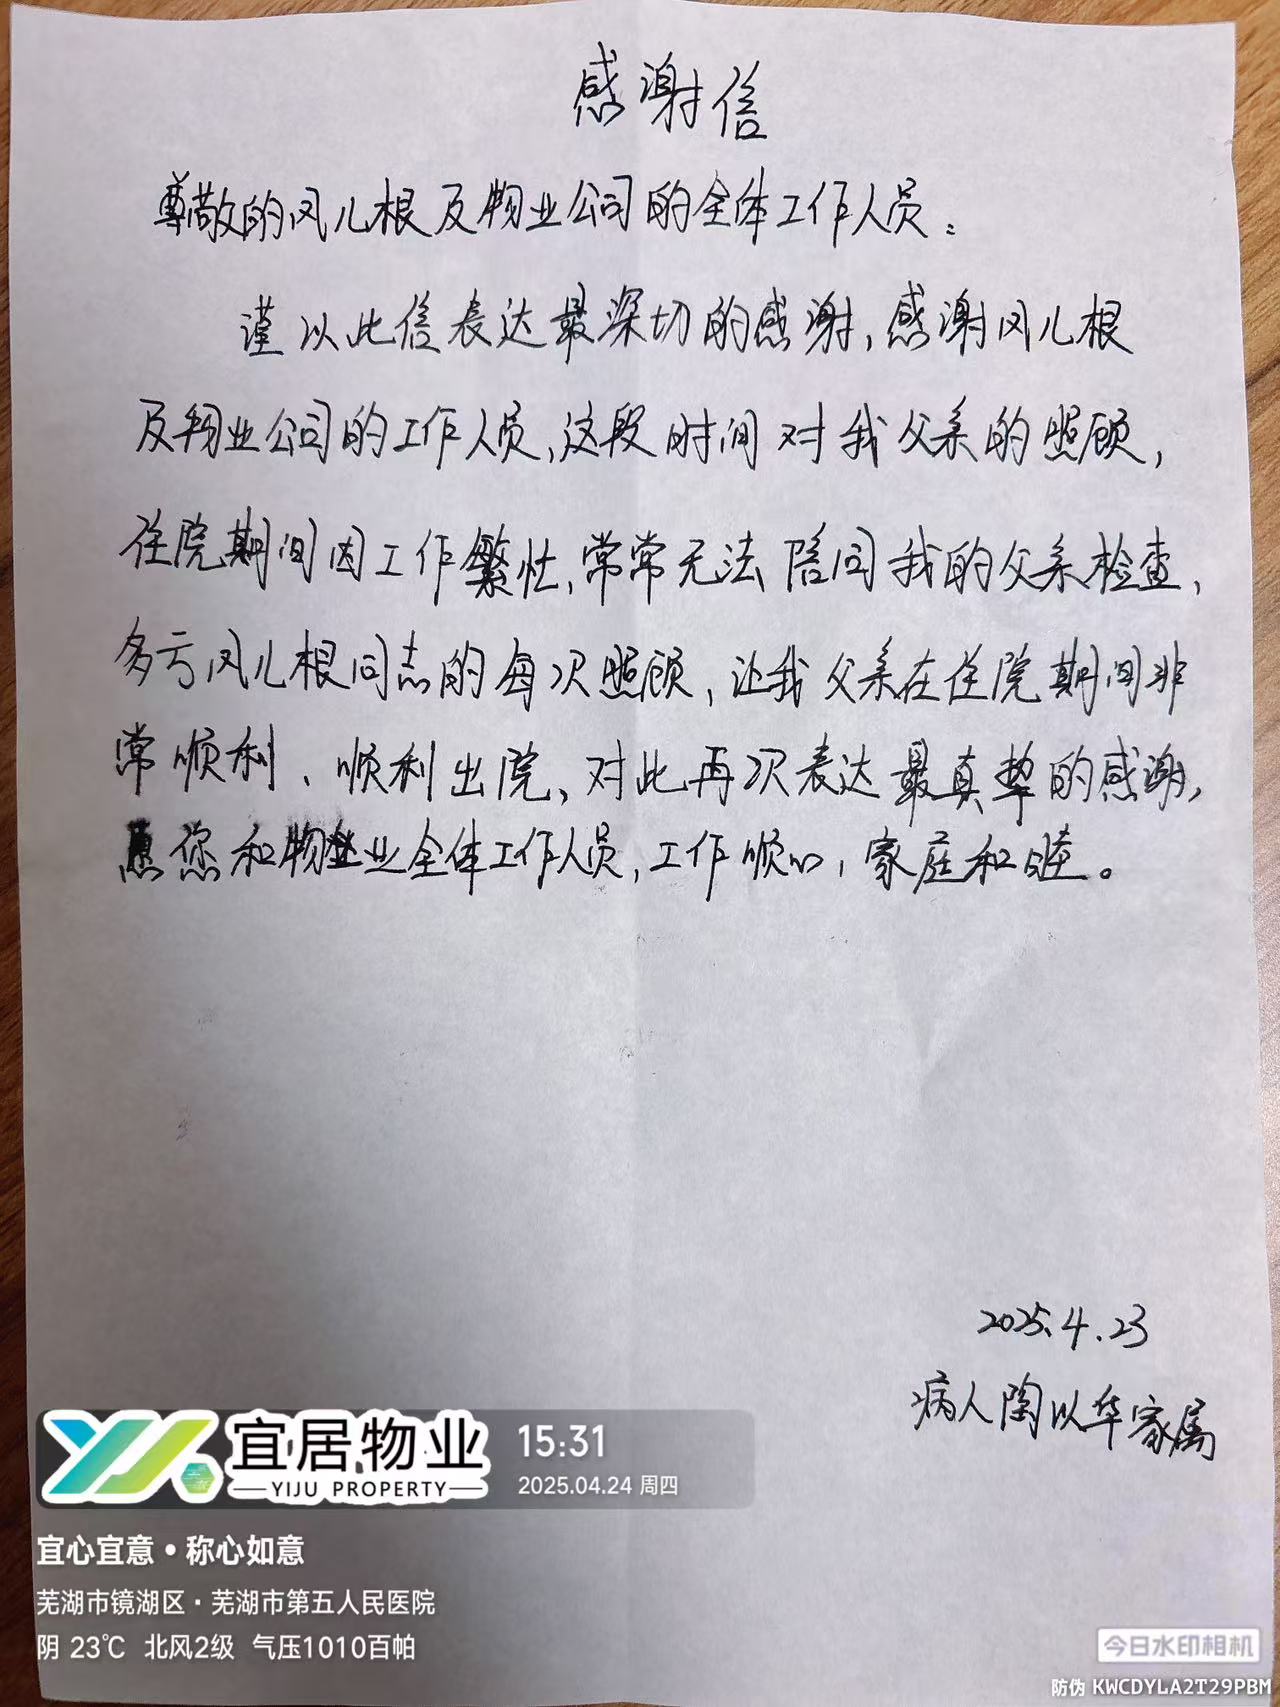 感谢信
尊敬的凤儿根及物业公司的全体工作人员：
谨以此信表达最深切的感谢，感谢凤儿根
及物业公司的工作人员，这段时间对我父亲的照顾，
住院期间因工作繁忙，常常无法陪同我的父亲检查，
多亏凤儿根同志的每次照顾，让我父亲在住院期间非
常顺利、顺利出院、对此再次表达最真挚的感谢，
愿您和物业全体工作人员，工作顺心，家庭和睦。
2025.4.23
病人陶以华家属
宜居物业
YIJU PROPERTY
15:31
2025.04.24 周四
宜心宜意·称心如意
芜湖市镜湖区·芜湖市第五人民医院
阴 23℃ 北风2级 气压1010百帕
今日水印相机
防伪 KWCDYLA2T29PBM